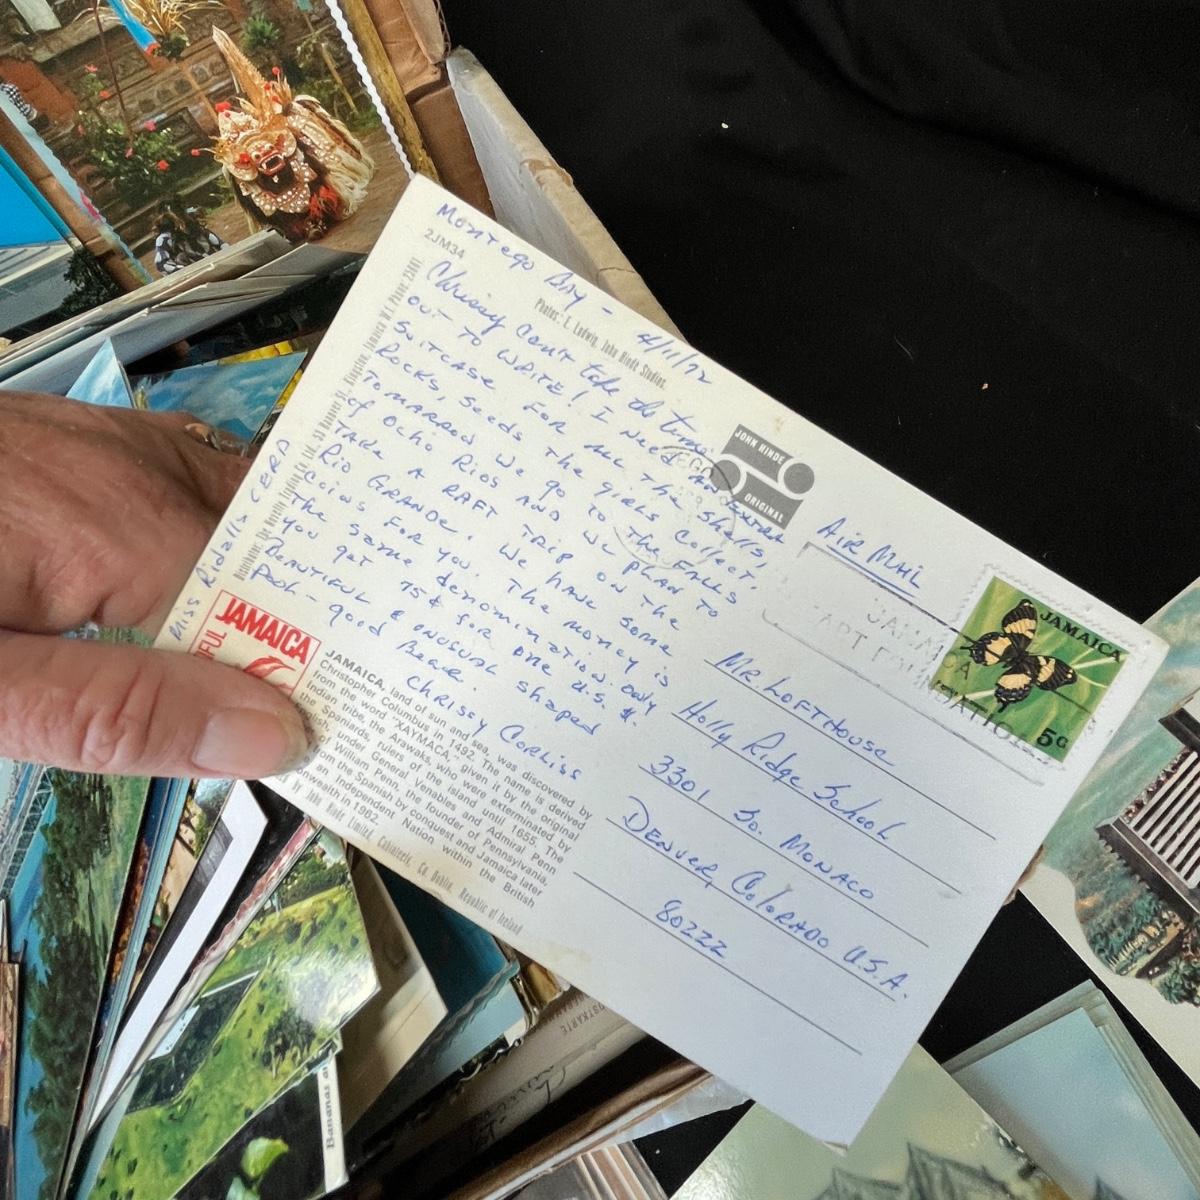 Montego Bay - 4/11/72
2JM34
Photos: E. Ludwig, John Hinde Studios.
Chrissy can't take the time
out to write! I need an extra
suitcase for all the shells,
rocks, seeds the girls collect.
Tomarrow we go to the Falls
of Ocho Rios and we plan to
take a raft trip on the
Rio Grande. We have some
coins for you. The money is
the same denomination. Only
you get 75¢ for one U.S. $.
Beautiful & unusual shaped
pool - good Beach.
Chrissy Corliss
Miss Ridalls
JAMAICA
JAMAICA, land of sun and sea, was discovered by
Christopher Columbus in 1492. The name is derived
from the word "XAYMACA," given it by the original
Indian tribe, the Arawaks, who were exterminated by
the Spaniards, rulers of the island until 1655. The
English, under General Venables and Admiral Penn
of William Penn, the founder of Pennsylvania,
from the Spanish by conquest and Jamaica later
an Independent Nation within the British
Commonwealth in 1962.
by John Hinde Limited, Cabinteely, Co. Dublin, Republic of Ireland
JOHN HINDE
ORIGINAL
AIR MAIL
JAMAICA
5c
Mr. Lofthouse
Holly Ridge School
3301 So. Monaco
Denver, Colorado U.S.A.
80222
Bananas